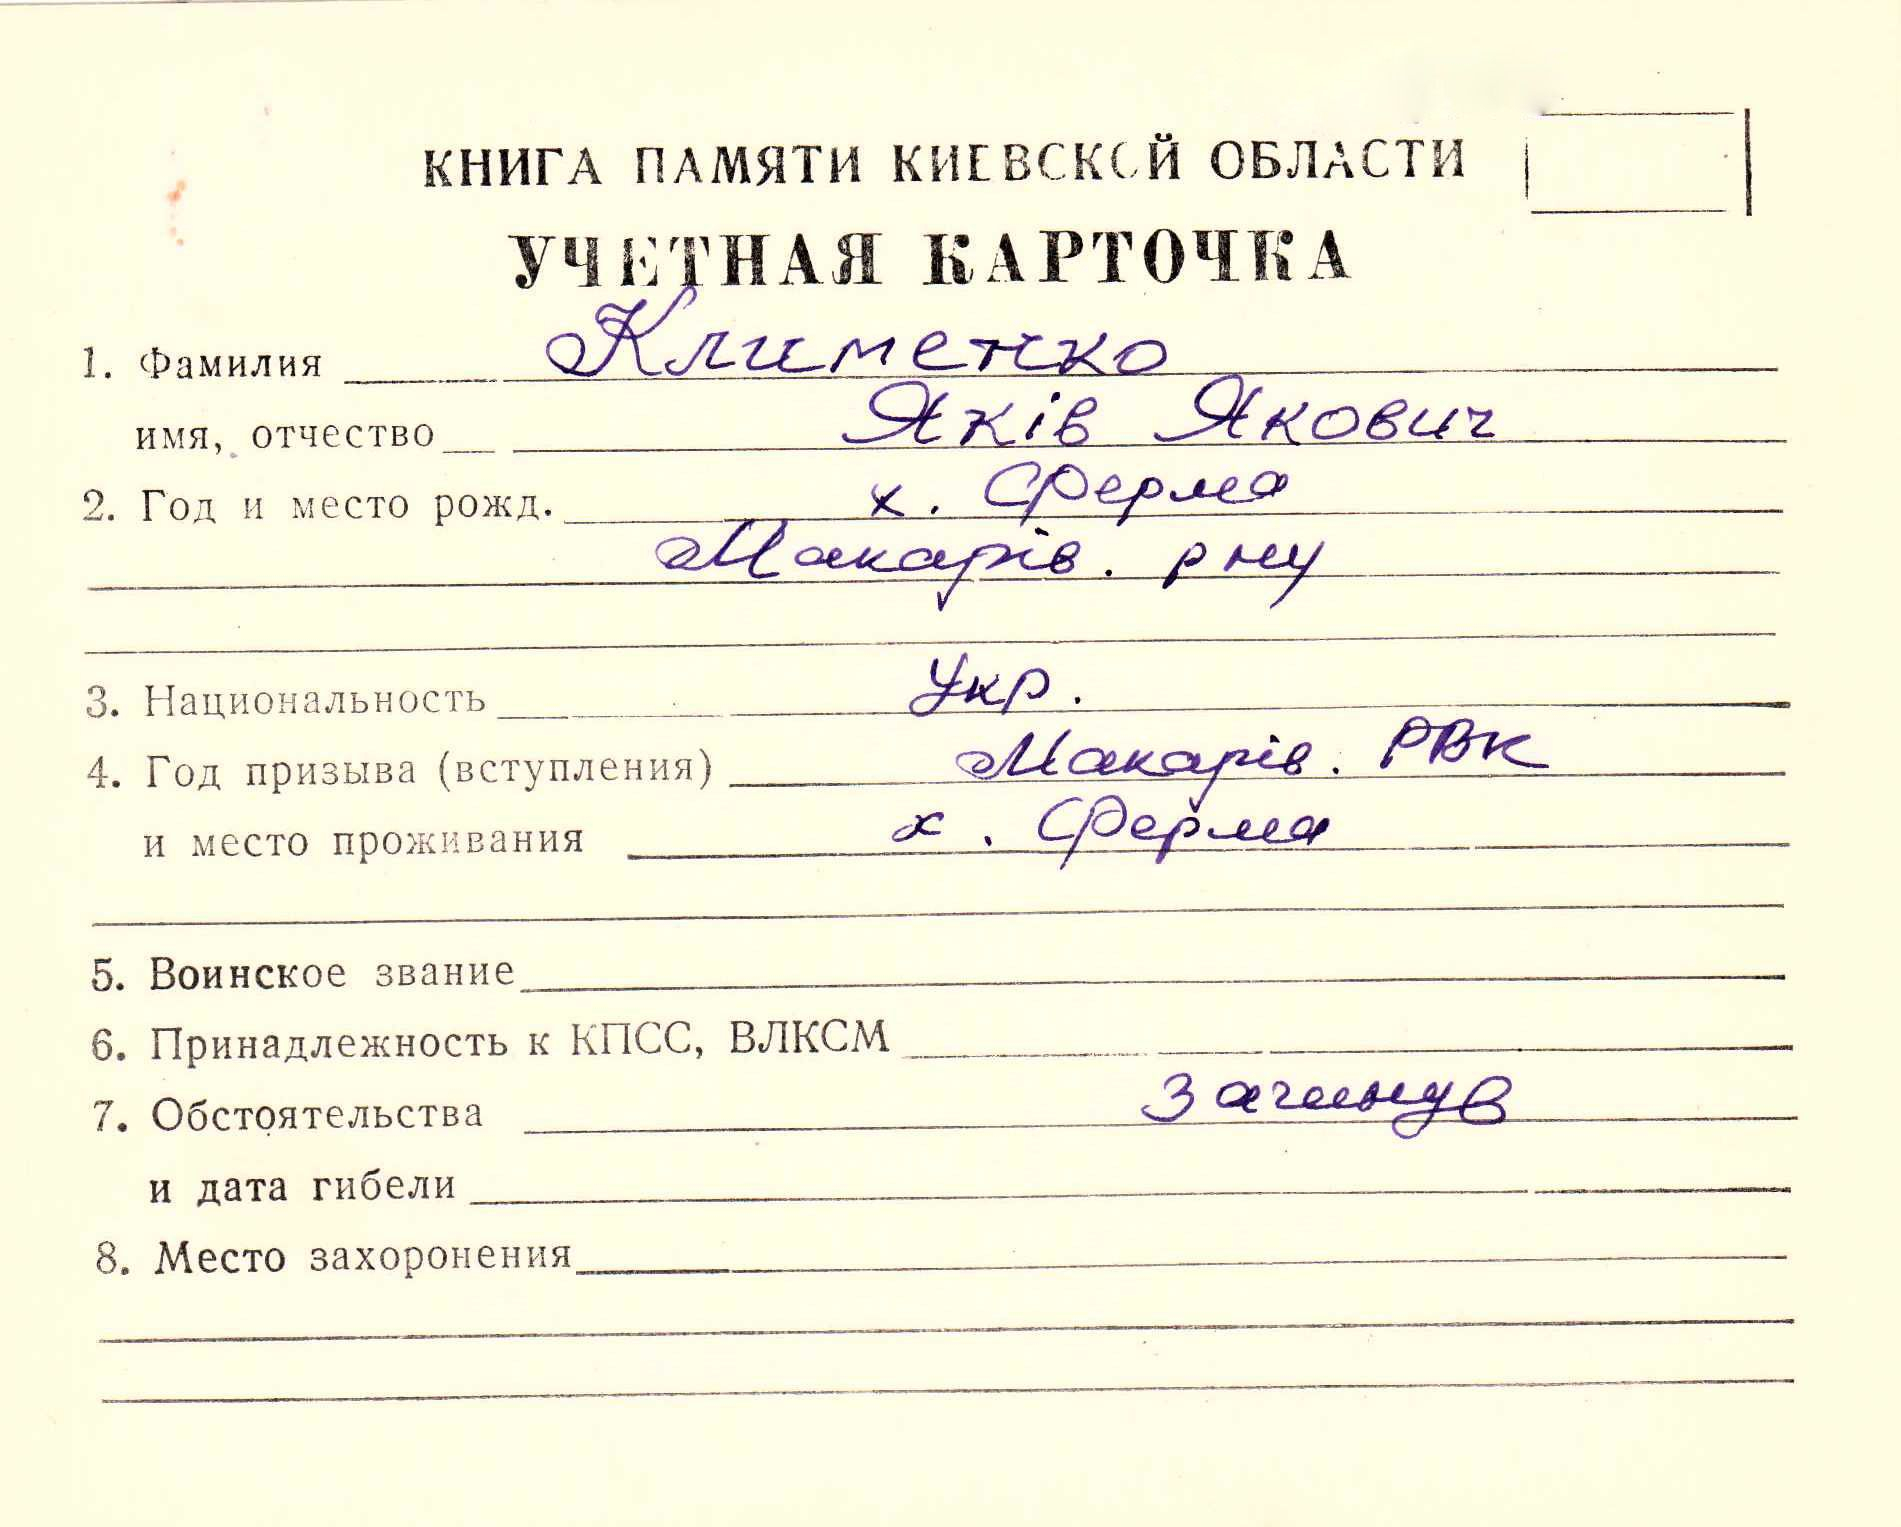 КНИГА ПАМЯТИ КИЕВСКОЙ ОБЛАСТИ
УЧЕТНАЯ КАРТОЧКА
1. Фамилия Клименко
имя, отчество Яків Якович
2. Год и место рожд. х. Ферма
Макарів. рну
3. Национальность Укр.
4. Год призыва (вступления) Макарів. РВК
и место проживания х. Ферма
5. Воинское звание
6. Принадлежность к КПСС, ВЛКСМ
7. Обстоятельства Загинув
и дата гибели
8. Место захоронения